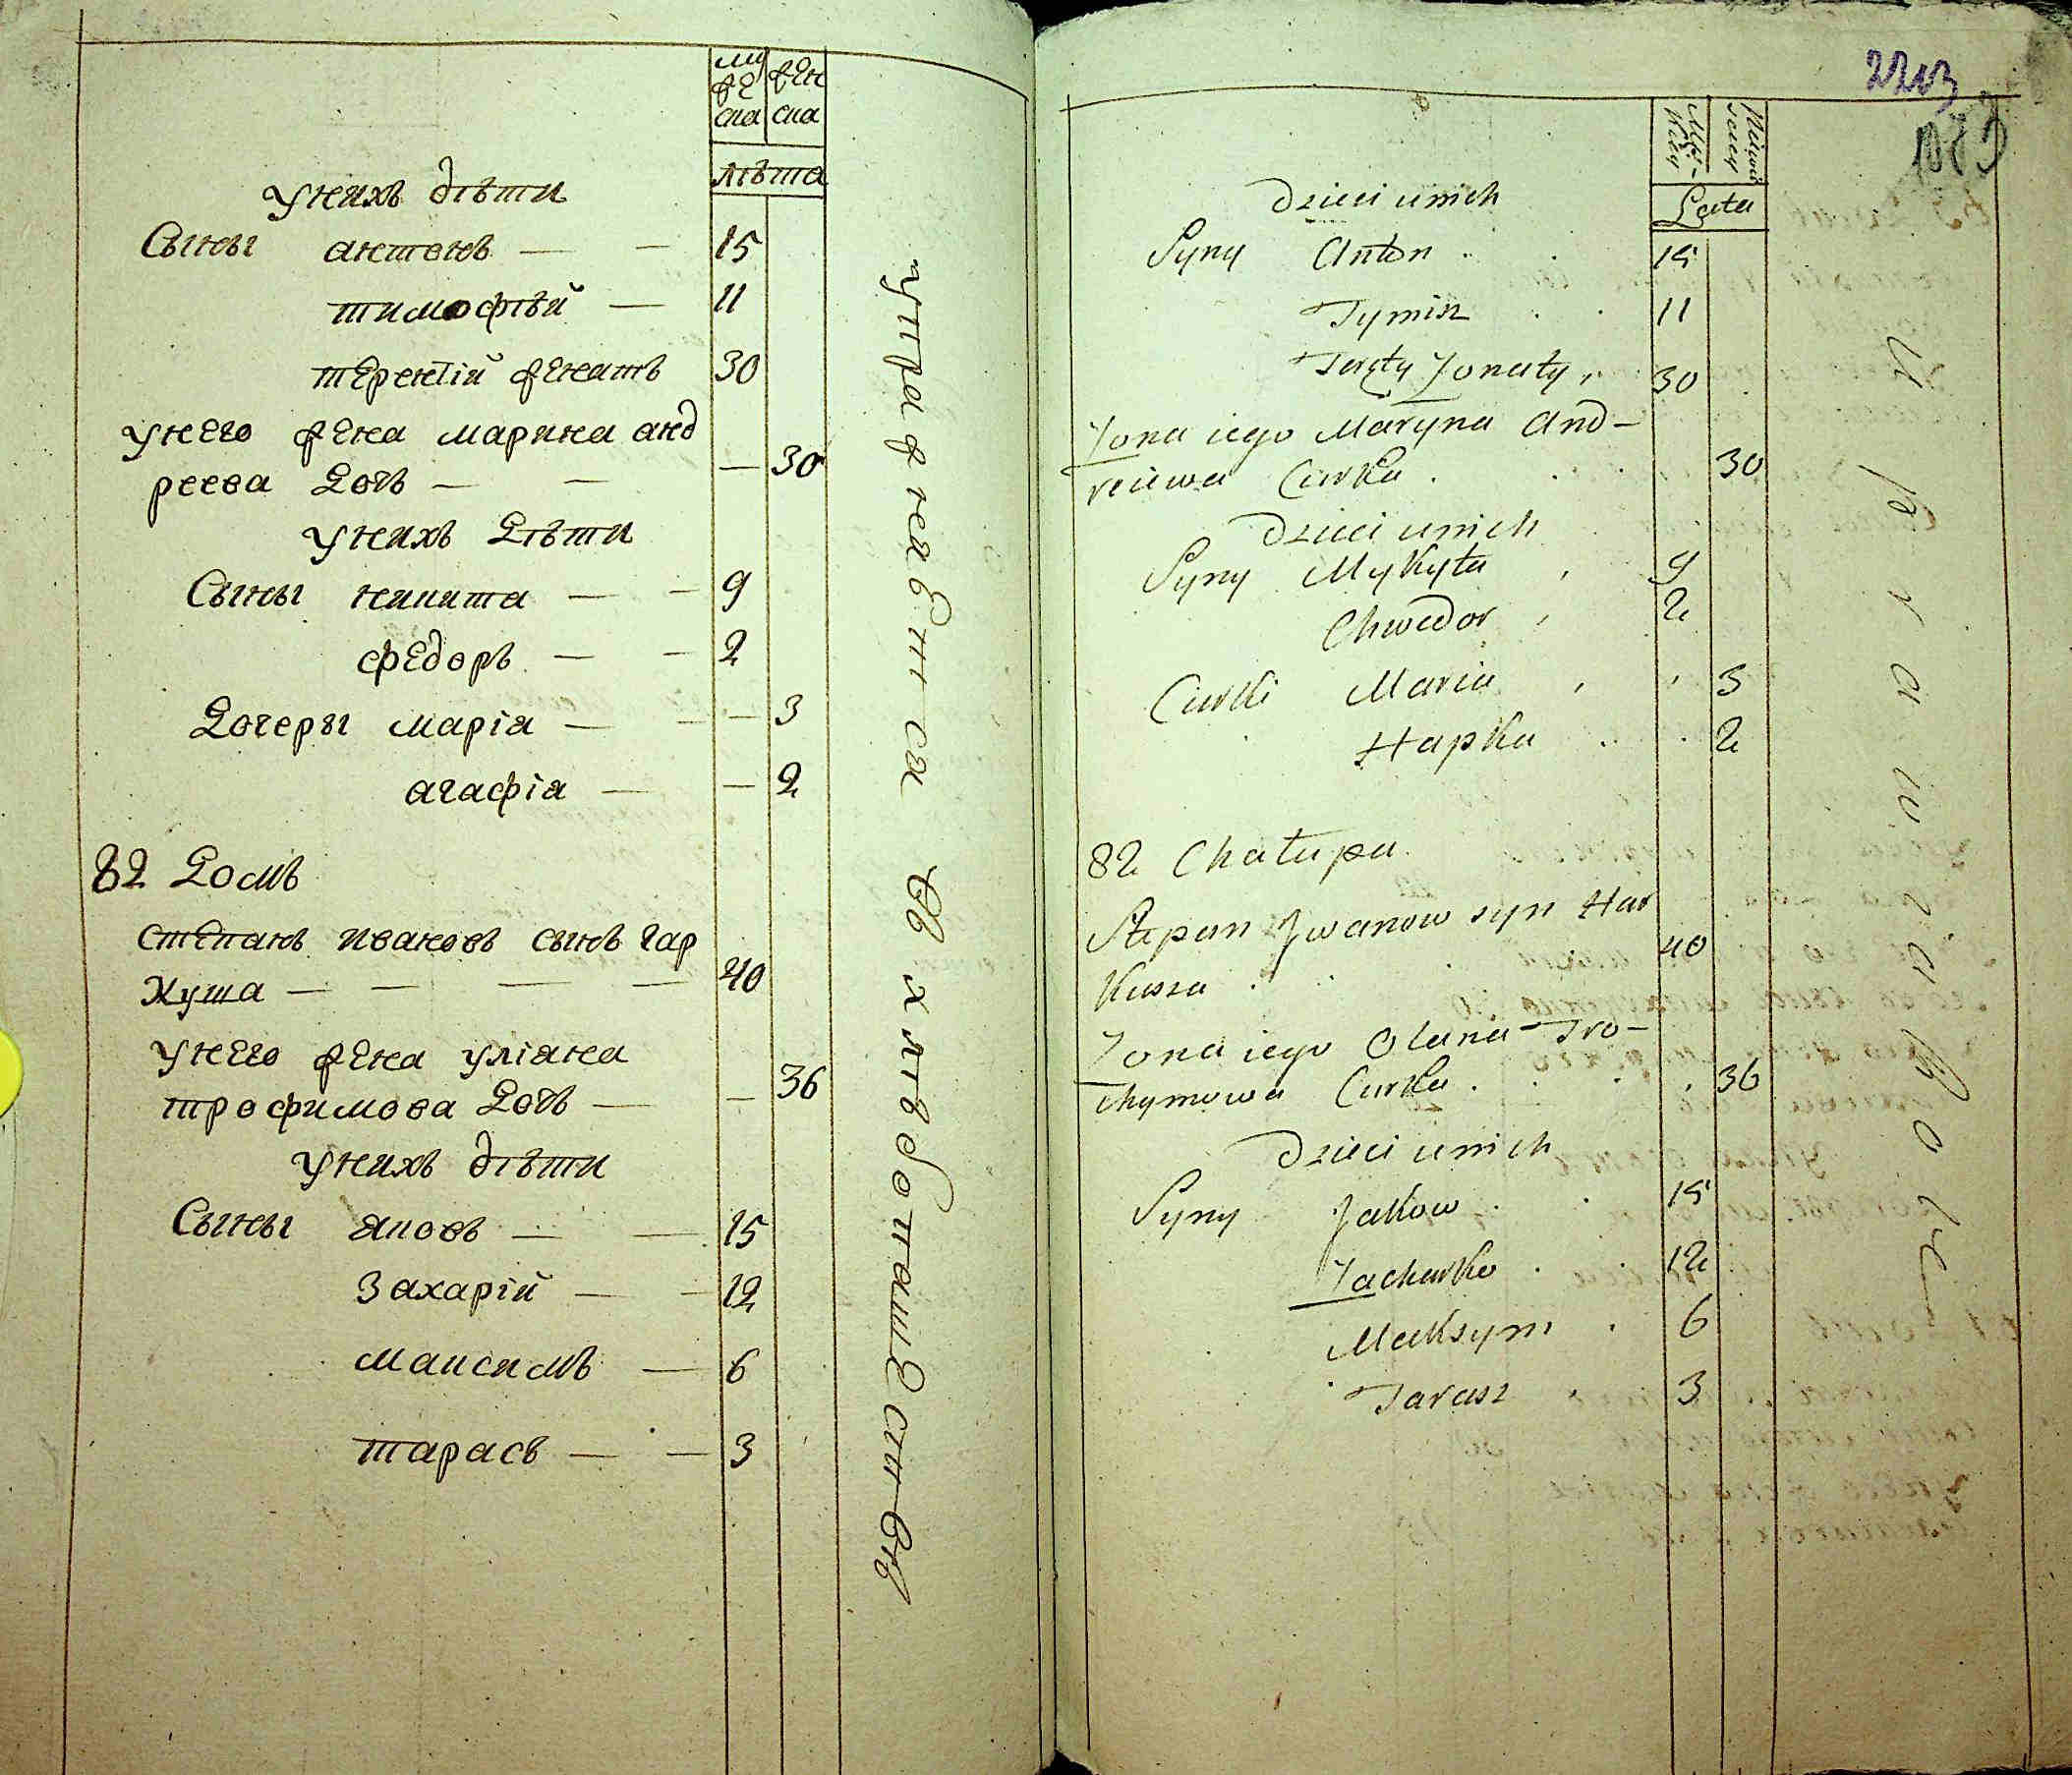 муже ска
жен ска
лѣта
У нихъ дѣти
Сыны антонъ — — 15
тимофѣй — 11
терентій женатъ 30
У него жена марина анд
реева Дочь — — — 30
У нихъ Дѣти
Сыны никита — — 9
федоръ — — 2
Дочеры маріа — — — 3
агафіа — — 2
82 Домъ
степанъ ивановъ сынъ гар
куша — — — — 40
У него жена уліана
трофимова Дочь — — 36
У нихъ дѣти
Сыны яковъ — — 15
Захарій — — 12
максимъ — 6
тарасъ — — 3
упражнаетса въ хлѣбопашествѣ
2203
Męz-
Kiey
Lata
Dzieci u nich
Syny Anton . . 15
Tymisz . . 11
Teręty Zonaty , 30
Zona iego Maryna And-
reiewa Curka . . 30
Dzieci u nich
Syny Mykyta , 9
Chwedor , 2
Curki Maria , , 3
Hapka . . . 2
82 Chałupa
Stepan Jwanow syn Har
Kusza . . . 40
Zona iego Olana Tro-
chymowa Curka . . . 36
Dzieci u nich
Syny Jakow . . 15
Zacharko . . 12
Maksym . 6
Tarasz . 3